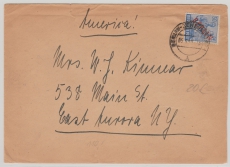 America!
Mrs. W. J. Kinnear
538 Main St.
East Aurora N.Y.